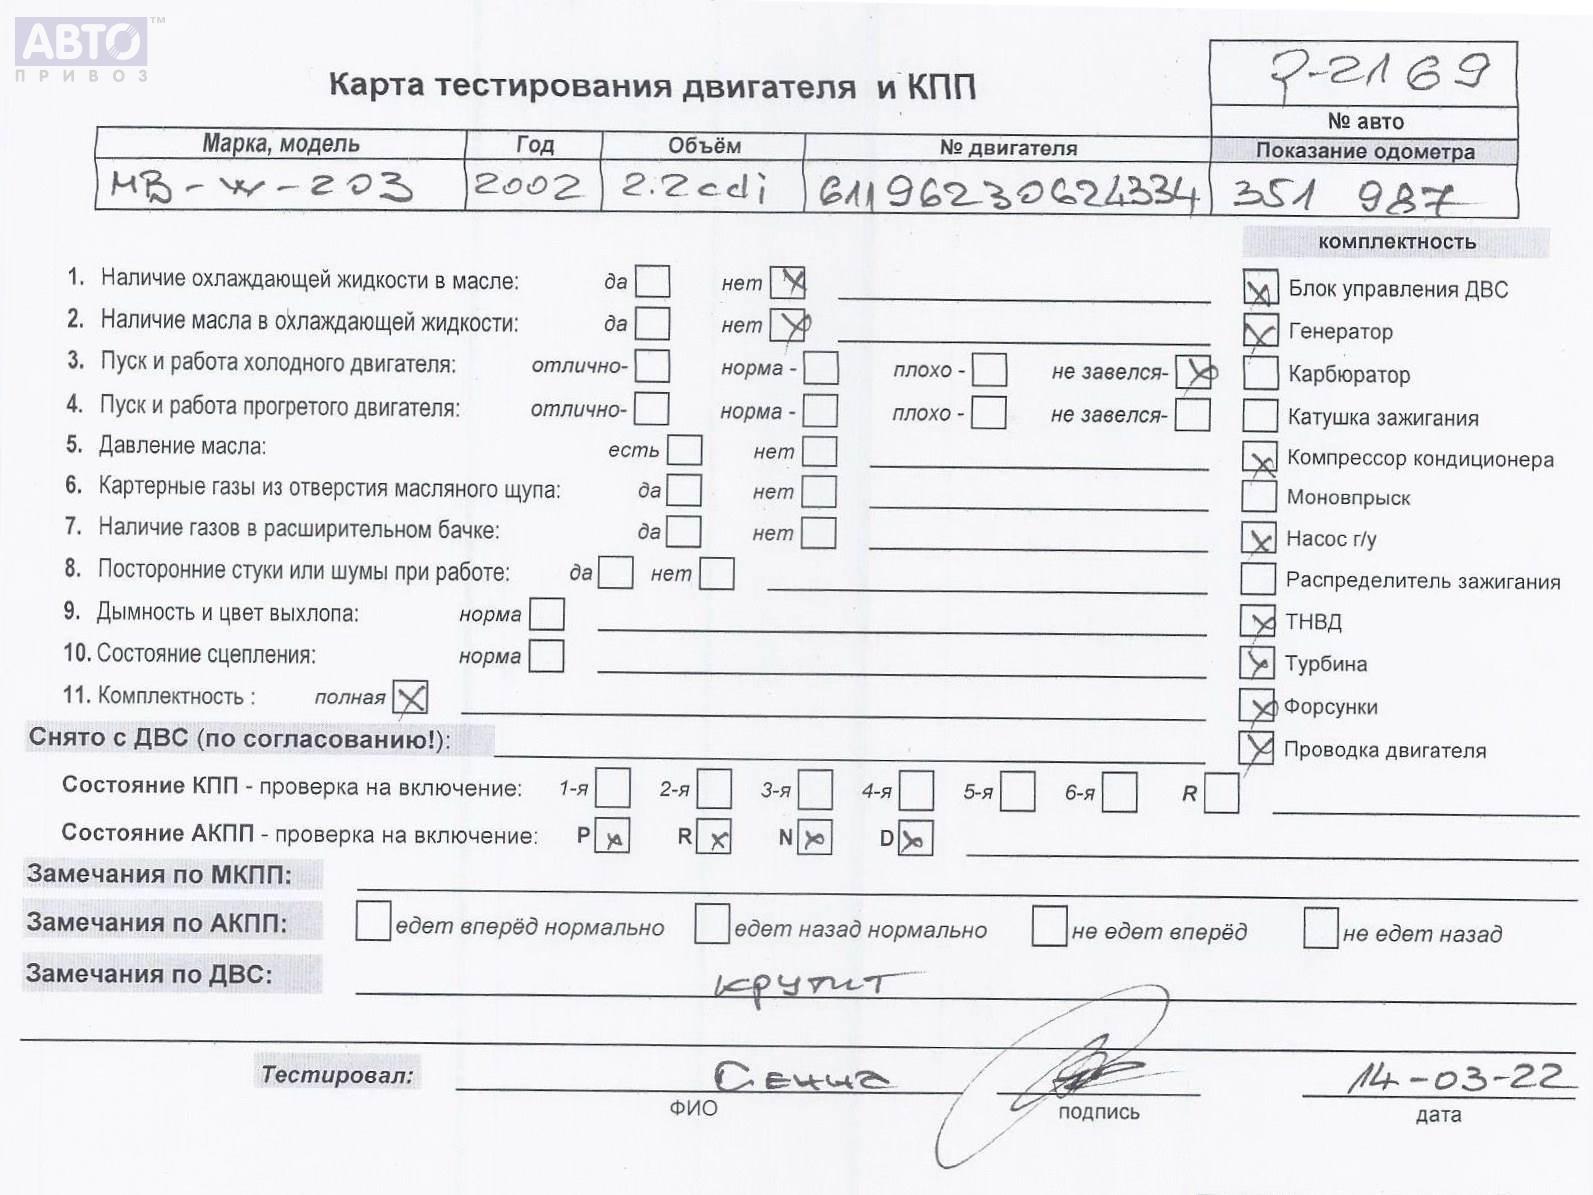 АВТО ™
ПРИВОЗ
Карта тестирования двигателя и КПП
P-2169
№ авто
Марка, модель Год Объём № двигателя Показание одометра
MB-W-203 2002 2.2cdi 61196230624334 351 987
комплектность
1. Наличие охлаждающей жидкости в масле: да нет
Блок управления ДВС
2. Наличие масла в охлаждающей жидкости: да нет
Генератор
3. Пуск и работа холодного двигателя: отлично- норма - плохо - не завелся-
Карбюратор
4. Пуск и работа прогретого двигателя: отлично- норма - плохо - не завелся-
Катушка зажигания
5. Давление масла: есть нет
Компрессор кондиционера
6. Картерные газы из отверстия масляного щупа: да нет
Моновпрыск
7. Наличие газов в расширительном бачке: да нет
Насос г/у
8. Посторонние стуки или шумы при работе: да нет
Распределитель зажигания
9. Дымность и цвет выхлопа: норма
ТНВД
10. Состояние сцепления: норма
Турбина
11. Комплектность : полная
Форсунки
Снято с ДВС (по согласованию!):
Проводка двигателя
Состояние КПП - проверка на включение: 1-я 2-я 3-я 4-я 5-я 6-я R
Состояние АКПП - проверка на включение: P R N D
Замечания по МКПП:
Замечания по АКПП: едет вперёд нормально едет назад нормально не едет вперёд не едет назад
Замечания по ДВС: крутит
Тестировал: Сенна 14-03-22
ФИО подпись дата